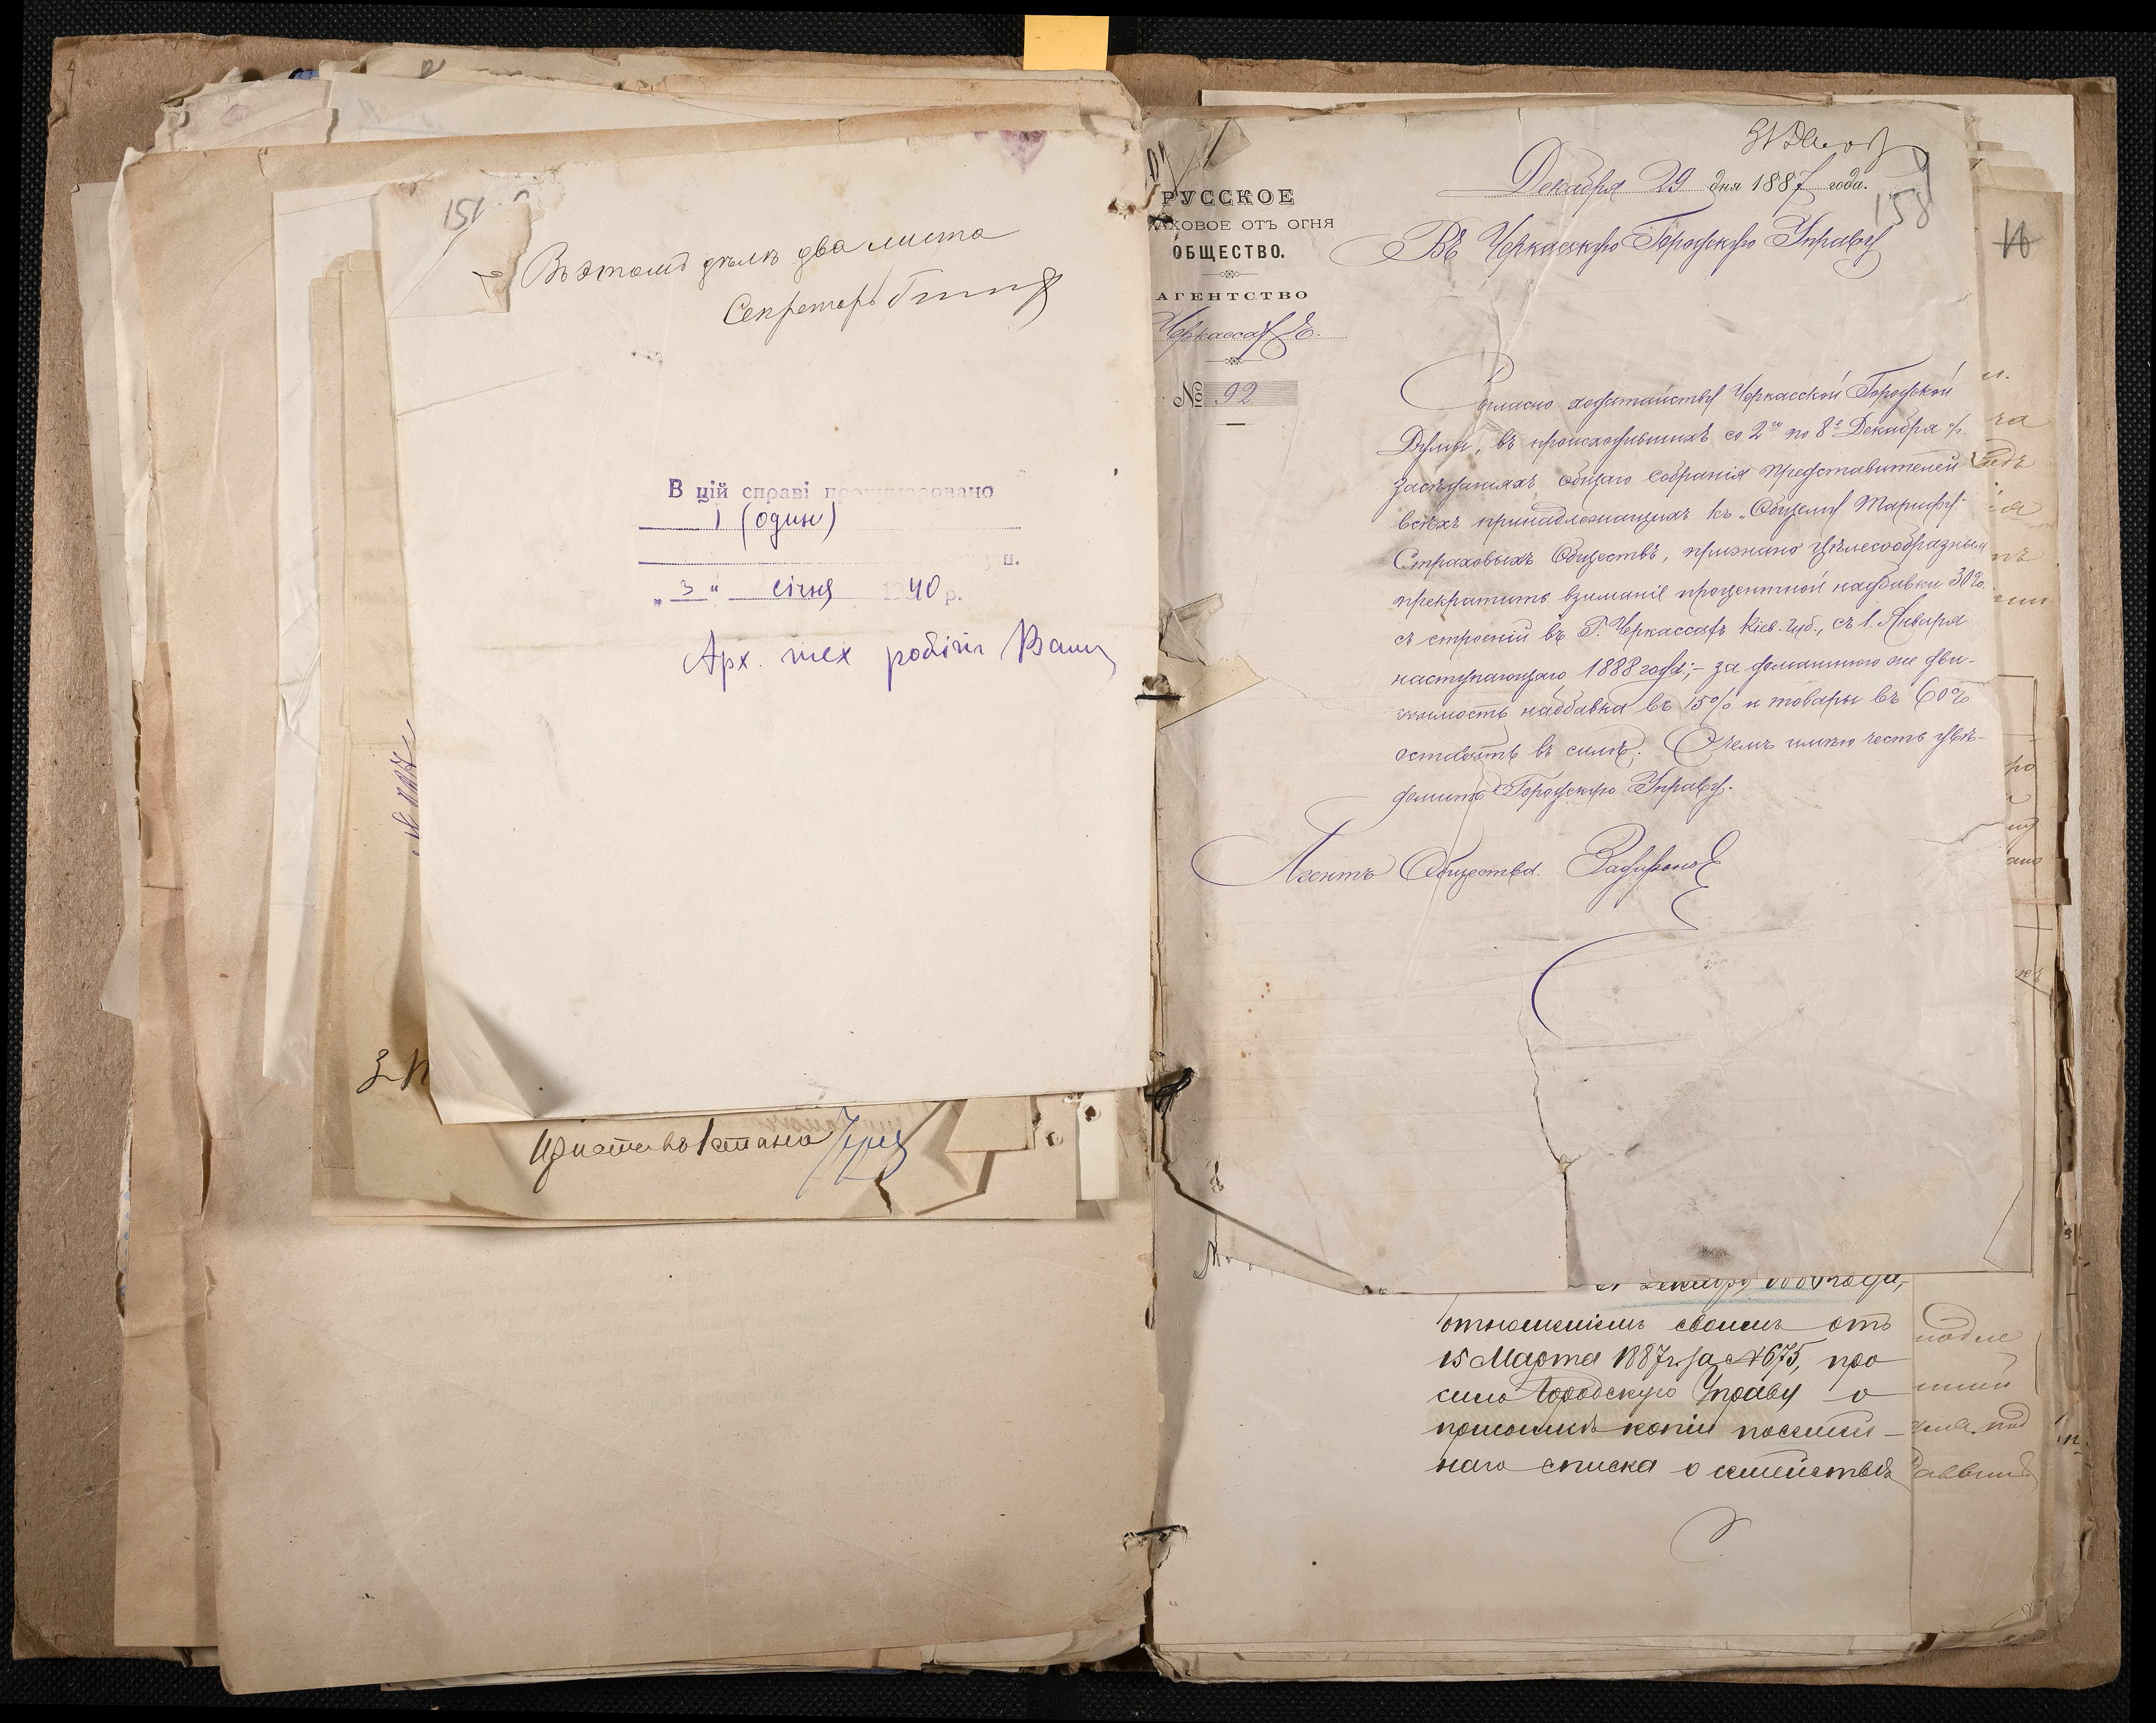 151
Въ этомъ дѣлѣ два листа
Секретарь
В цій справі пронумеровано
1 (один)
„ 3 “ січня 1940 р.
Арх. тех робітн
Приставъ 1 стана
РУССКОЕ
СТРАХОВОЕ ОТЪ ОГНЯ
ОБЩЕСТВО.
АГЕНТСТВО
Черкассах
№ 92
Декабря 29 дня 1887 года.
158
Въ Черкасскую Городскую Управу
Согласно ходатайству Черкасской Городской
Думы, въ происходившихъ со 2го по 8е Декабря с/г.
засѣданіяхъ общаго собранія представителей
всѣхъ принадлежащихъ къ „Общему Тарифу“
Страховыхъ Обществъ, признано цѣлесообразнымъ
прекратить взиманіе процентной надбавки 30%
съ строеній въ Г. Черкассахъ Кіев. губ., съ 1. Января
наступающаго 1888 года; – за домашнюю же дви-
жимость надбавка въ 15% и товары въ 60%
остаются въ силѣ. О чемъ имѣю честь увѣ-
домить Городскую Управу.
Агентъ Общества.
отношеніемъ своимъ отъ
15 Марта 1887 г. за № 675, про
сило Городскую Управу о
присылкѣ копіи посемей-
наго списка о семействѣ